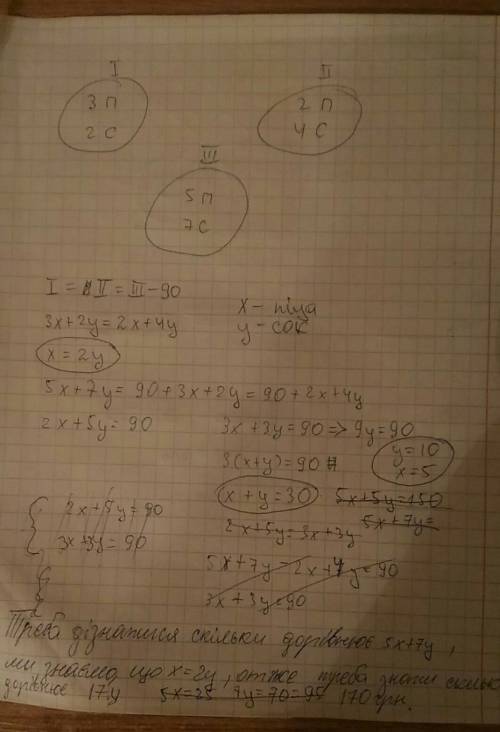 I
3 П
2 С
II
2 П
4 С
III
5 П
7 С
I = II = III - 90
x - піца
3x + 2y = 2x + 4y
y - сок
x = 2y
5x + 7y = 90 + 3x + 2y = 90 + 2x + 4y
2x + 5y = 90
3x + 3y = 90 => 9y = 90
3(x+y) = 90
y = 10
x = 5
x + y = 30
5x + 5y = 150
5x + 7y =
2x + 5y = 90
3x + 3y = 90
2x + 5y = 3x + 3y
5x + 7y - 2x + 4y = 90
3x + 3y = 90
Треба дізнатися скільки дорівнює 5x+7y,
ми знаємо що x = 2y, отже треба знати скільки
дорівнює 17y 5x = 25 7y = 70 = 95 170 грн.